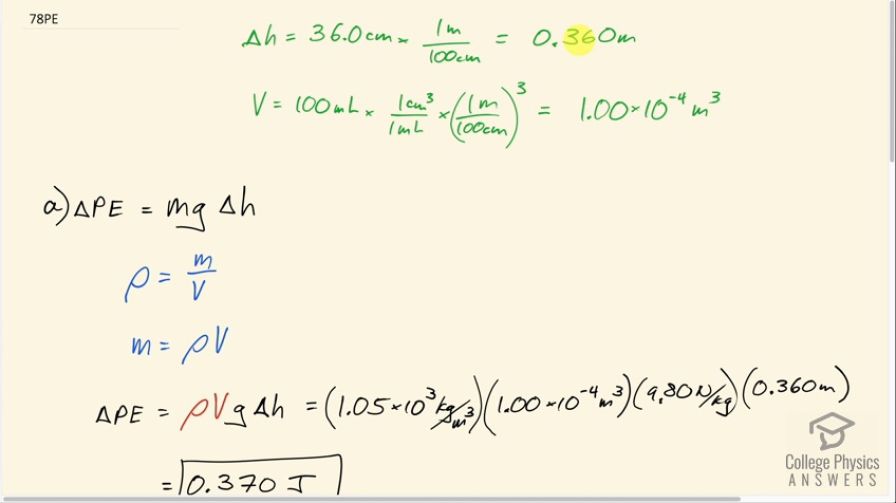 78PE
Δh = 36.0 cm × 1m/100cm = 0.360m
V = 100mL × 1cm³/1mL × (1m/100cm)³ = 1.00×10⁻⁴ m³
a) ΔPE = mg Δh
ρ = m/V
m = ρV
ΔPE = ρVgΔh = (1.05×10³ kg/m³)(1.00×10⁻⁴ m³)(9.80 N/kg)(0.360m)
= 0.370 J
College Physics
ANSWERS